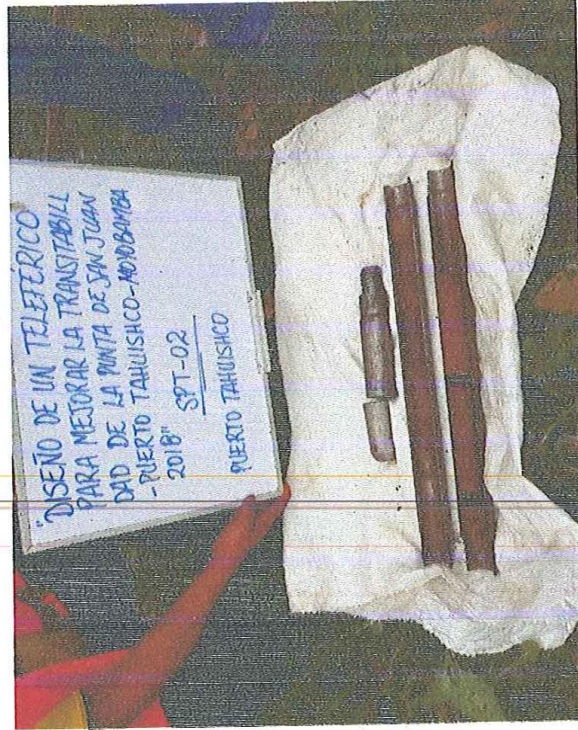 "DISEÑO DE UN TELEFÉRICO
PARA MEJORAR LA TRANSITABILI
DAD DE LA PUNTA DE SAN JUAN
-PUERTO TAHUISHCO-MOYOBAMBA
2018"
SPT-02
PUERTO TAHUISHCO